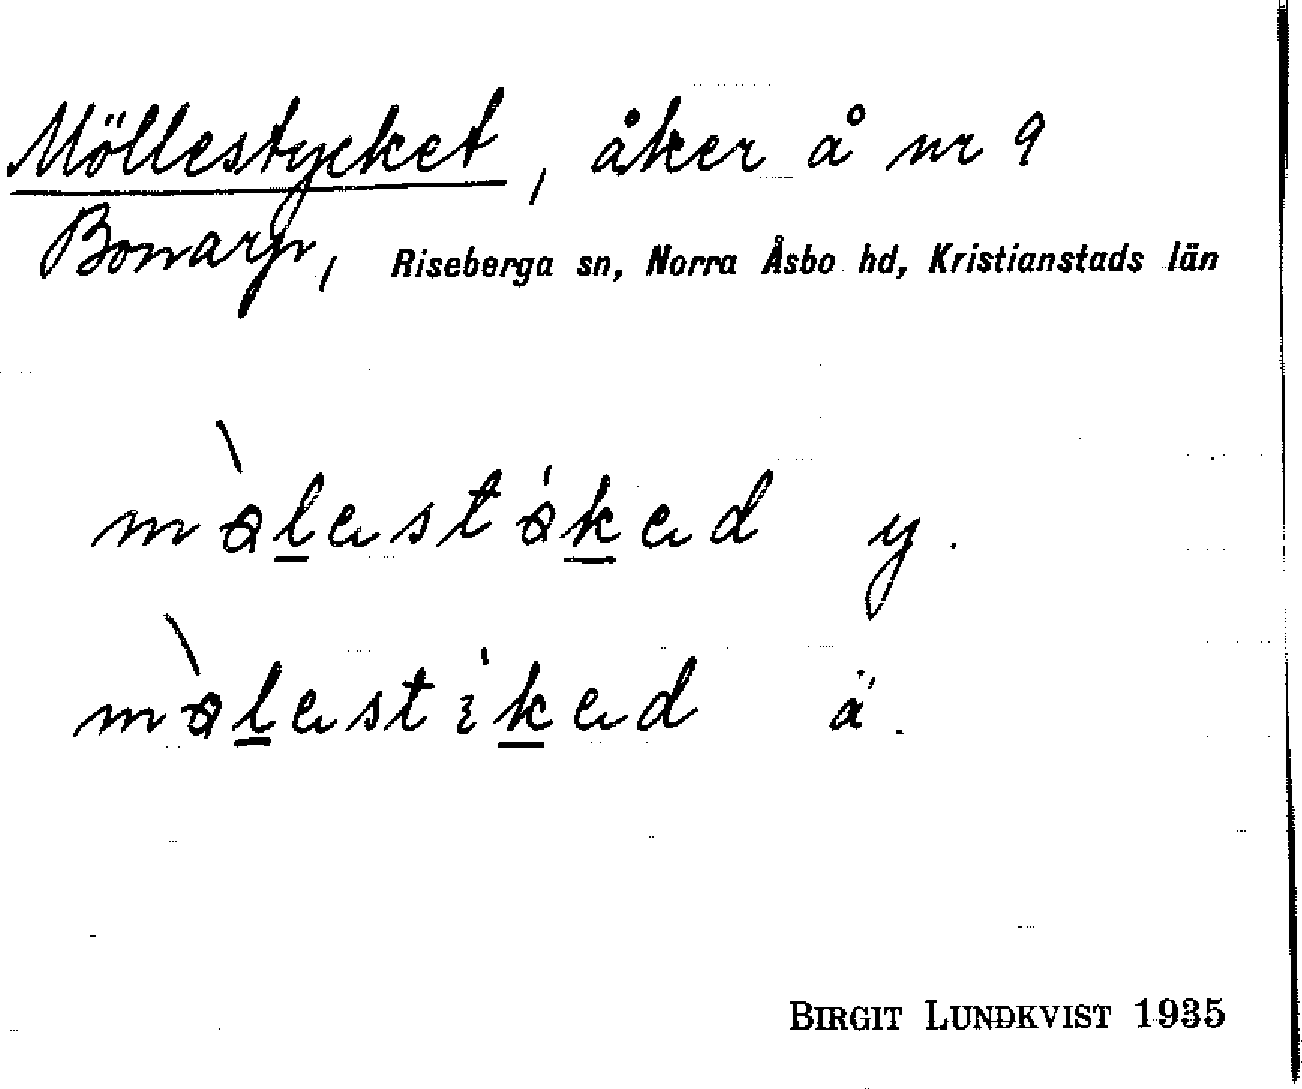 Möllestycket, åker å nr 9
Bonarp, Riseberga sn, Norra Åsbo hd, Kristianstads län
y.
ä.
BIRGIT LUNDKVIST 1935